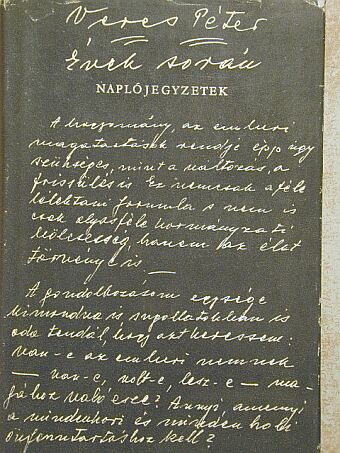 Veres Péter
Évek során
NAPLÓJEGYZETEK
A hagyomány, az emberi
magatartások rendje épp úgy
szükséges, mint a változás, a
frissülés is. Ez nemcsak afféle
lélektani formula s nem is
csak olyasféle kormányzati
bölcsesség, hanem az élet
törvénye is —
A gondolkozásom egysége
kimondva is sugallatokban is
oda tendál, hogy azt keressem:
van-e az emberi nemnek
— van-e, volt-e, lesz-e — ma-
gához való esze? Annyi, amennyi
a mindenkori és minden holi
önfenntartáshoz kell?